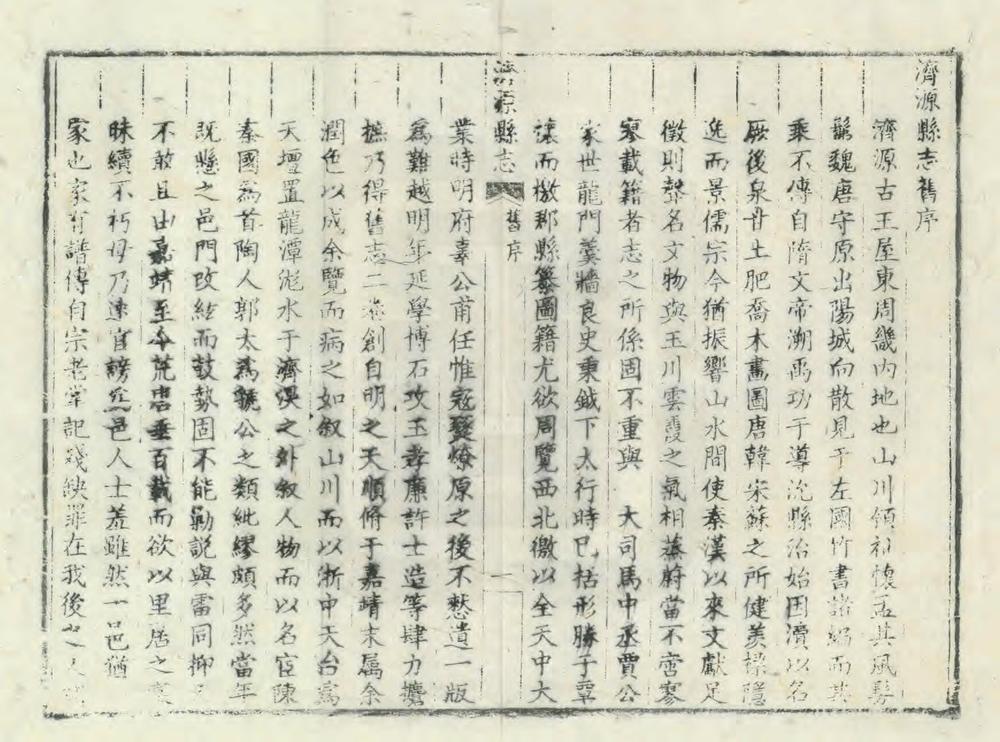 濟源縣志舊序
濟源古王屋東周畿內地也山川領袖懷孟其風髣
髴魏唐守原出陽城向散見于左國竹書諸 而其
乘不傳自隋文帝溯禹功于導沇縣治始因濟以名
厥後泉甘土肥喬木畫圖唐韓宋蘇之所健羨 隱
逸而景儒宗今猶振響山水間使秦漢以來文獻足
徵則聲名文物與玉川雲霞之氣相蒸蔚當不啻寥
寥載籍者志之所係固不重與 大司馬中丞賈公
家世龍門羹牆良史秉鉞下太行時已括形勝于覃
懷而檄郡縣纂圖籍尤欲周覽西北徼以全天中大
濟源縣志 舊序 一
業時明府辜公甫任惟寇燹燎原之後不憖遺一版
為難越明年延學博石攻玉孝廉許士造等肆力擴
摭乃得舊志二卷創自明之天順脩于嘉靖末属余
潤色以成余覽而病之如叙山川而以淅中天台為
天壇置龍潭滮水于濟溟之外叙人物而以名宦陳
秦國為首陶人郭太為虢公之類紕繆頗多然當年
既懸之邑門改絃而鼓勢固不能勦說與雷同抑
不敢且由嘉靖至今荒唐垂百載而欲以里居之
昧續不朽毋乃速官謗 邑人士羞雖然一邑猶
家也家有譜傳自宗老掌記殘缺罪在我後之人